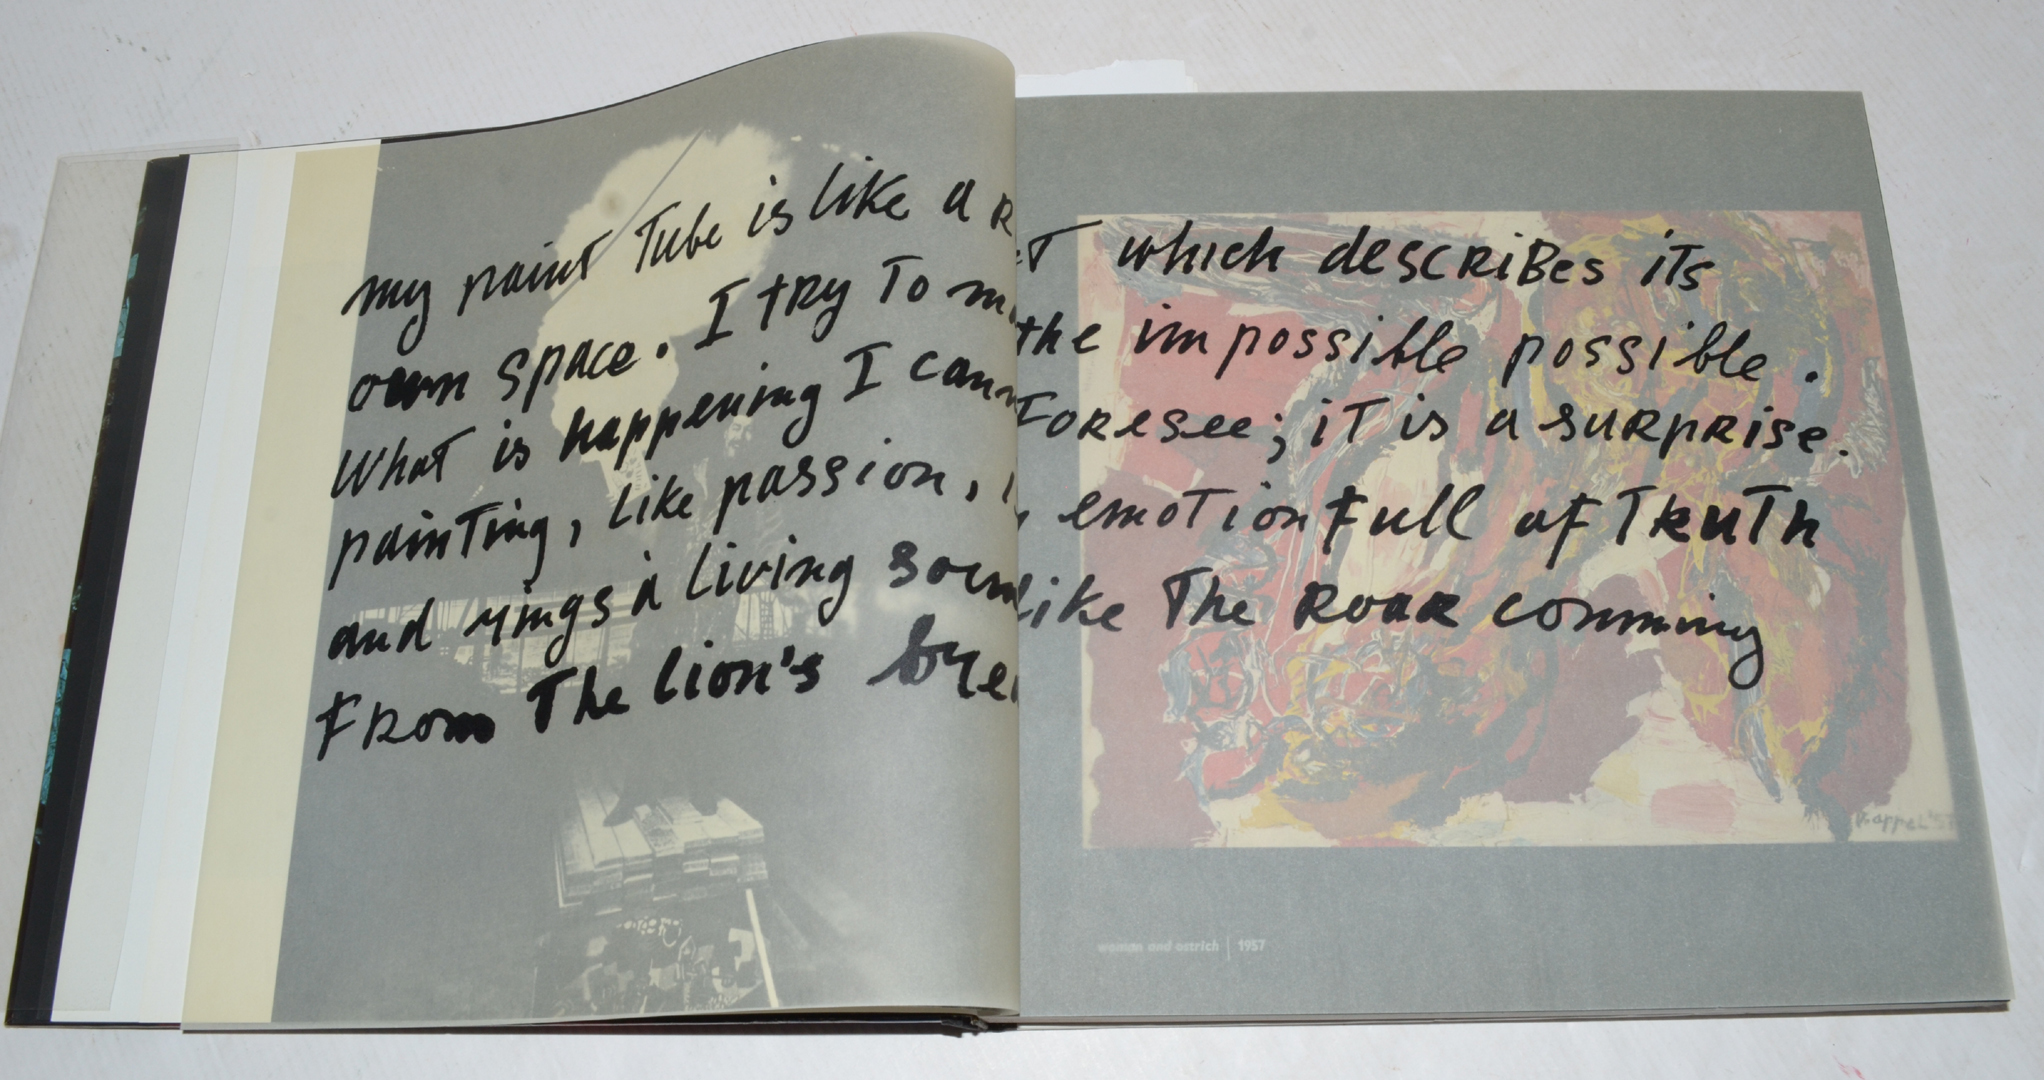 my paint Tube is like a which describes its
own space. I try To the impossible possible.
What is happening I foresee; iT is a surprise.
painTing, like passion, emoTion full of TRuTh
and rings a living like The Roar comming
From The lion's
k.appel '57
woman and ostrich | 1957